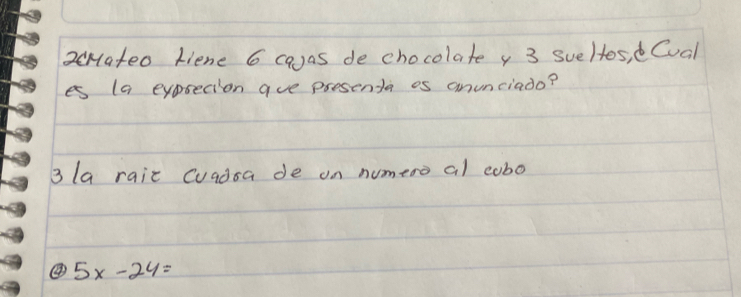 2¿Mateo tiene 6 cajas de chocolate y 3 sueltos,¿Cual
es la expresecion que presenta es anunciado?
3 la raiz cuadra de un numero al cubo
④ 5x -24=